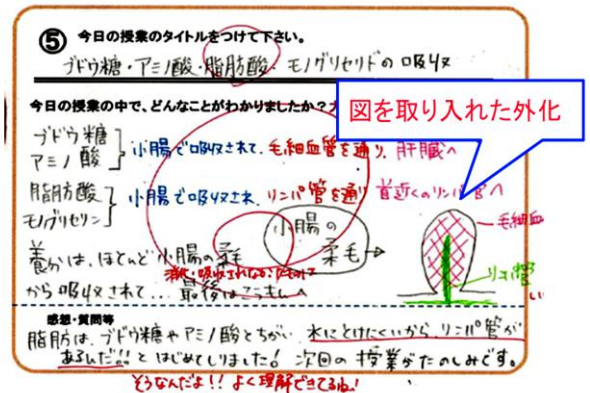 ⑤ 今日の授業のタイトルをつけて下さい。
ブドウ糖・アミノ酸・脂肪酸・モノグリセリドの吸収
今日の授業の中で、どんなことがわかりましたか?
図を取り入れた外化
ブドウ糖
アミノ酸
小腸で吸収されて、毛細血管を通り、肝臓へ
脂肪酸
モノグリセリン
小腸で吸収され、リンパ管を通り 首近くのリンパ管へ
小腸の
柔毛→
毛細血
リンパ管
養分は、ほとんど小腸の柔毛
消化・吸収されなかったものは
から吸収されて… 最後はこうもんへ
感想・質問等
脂肪は、ブドウ糖やアミノ酸とちがい、水にとけにくいから、リンパ管が
あるんだ!!とはじめてしりました! 次回の授業がたのしみです。
そうなんだよ!! よく理解できてるね!